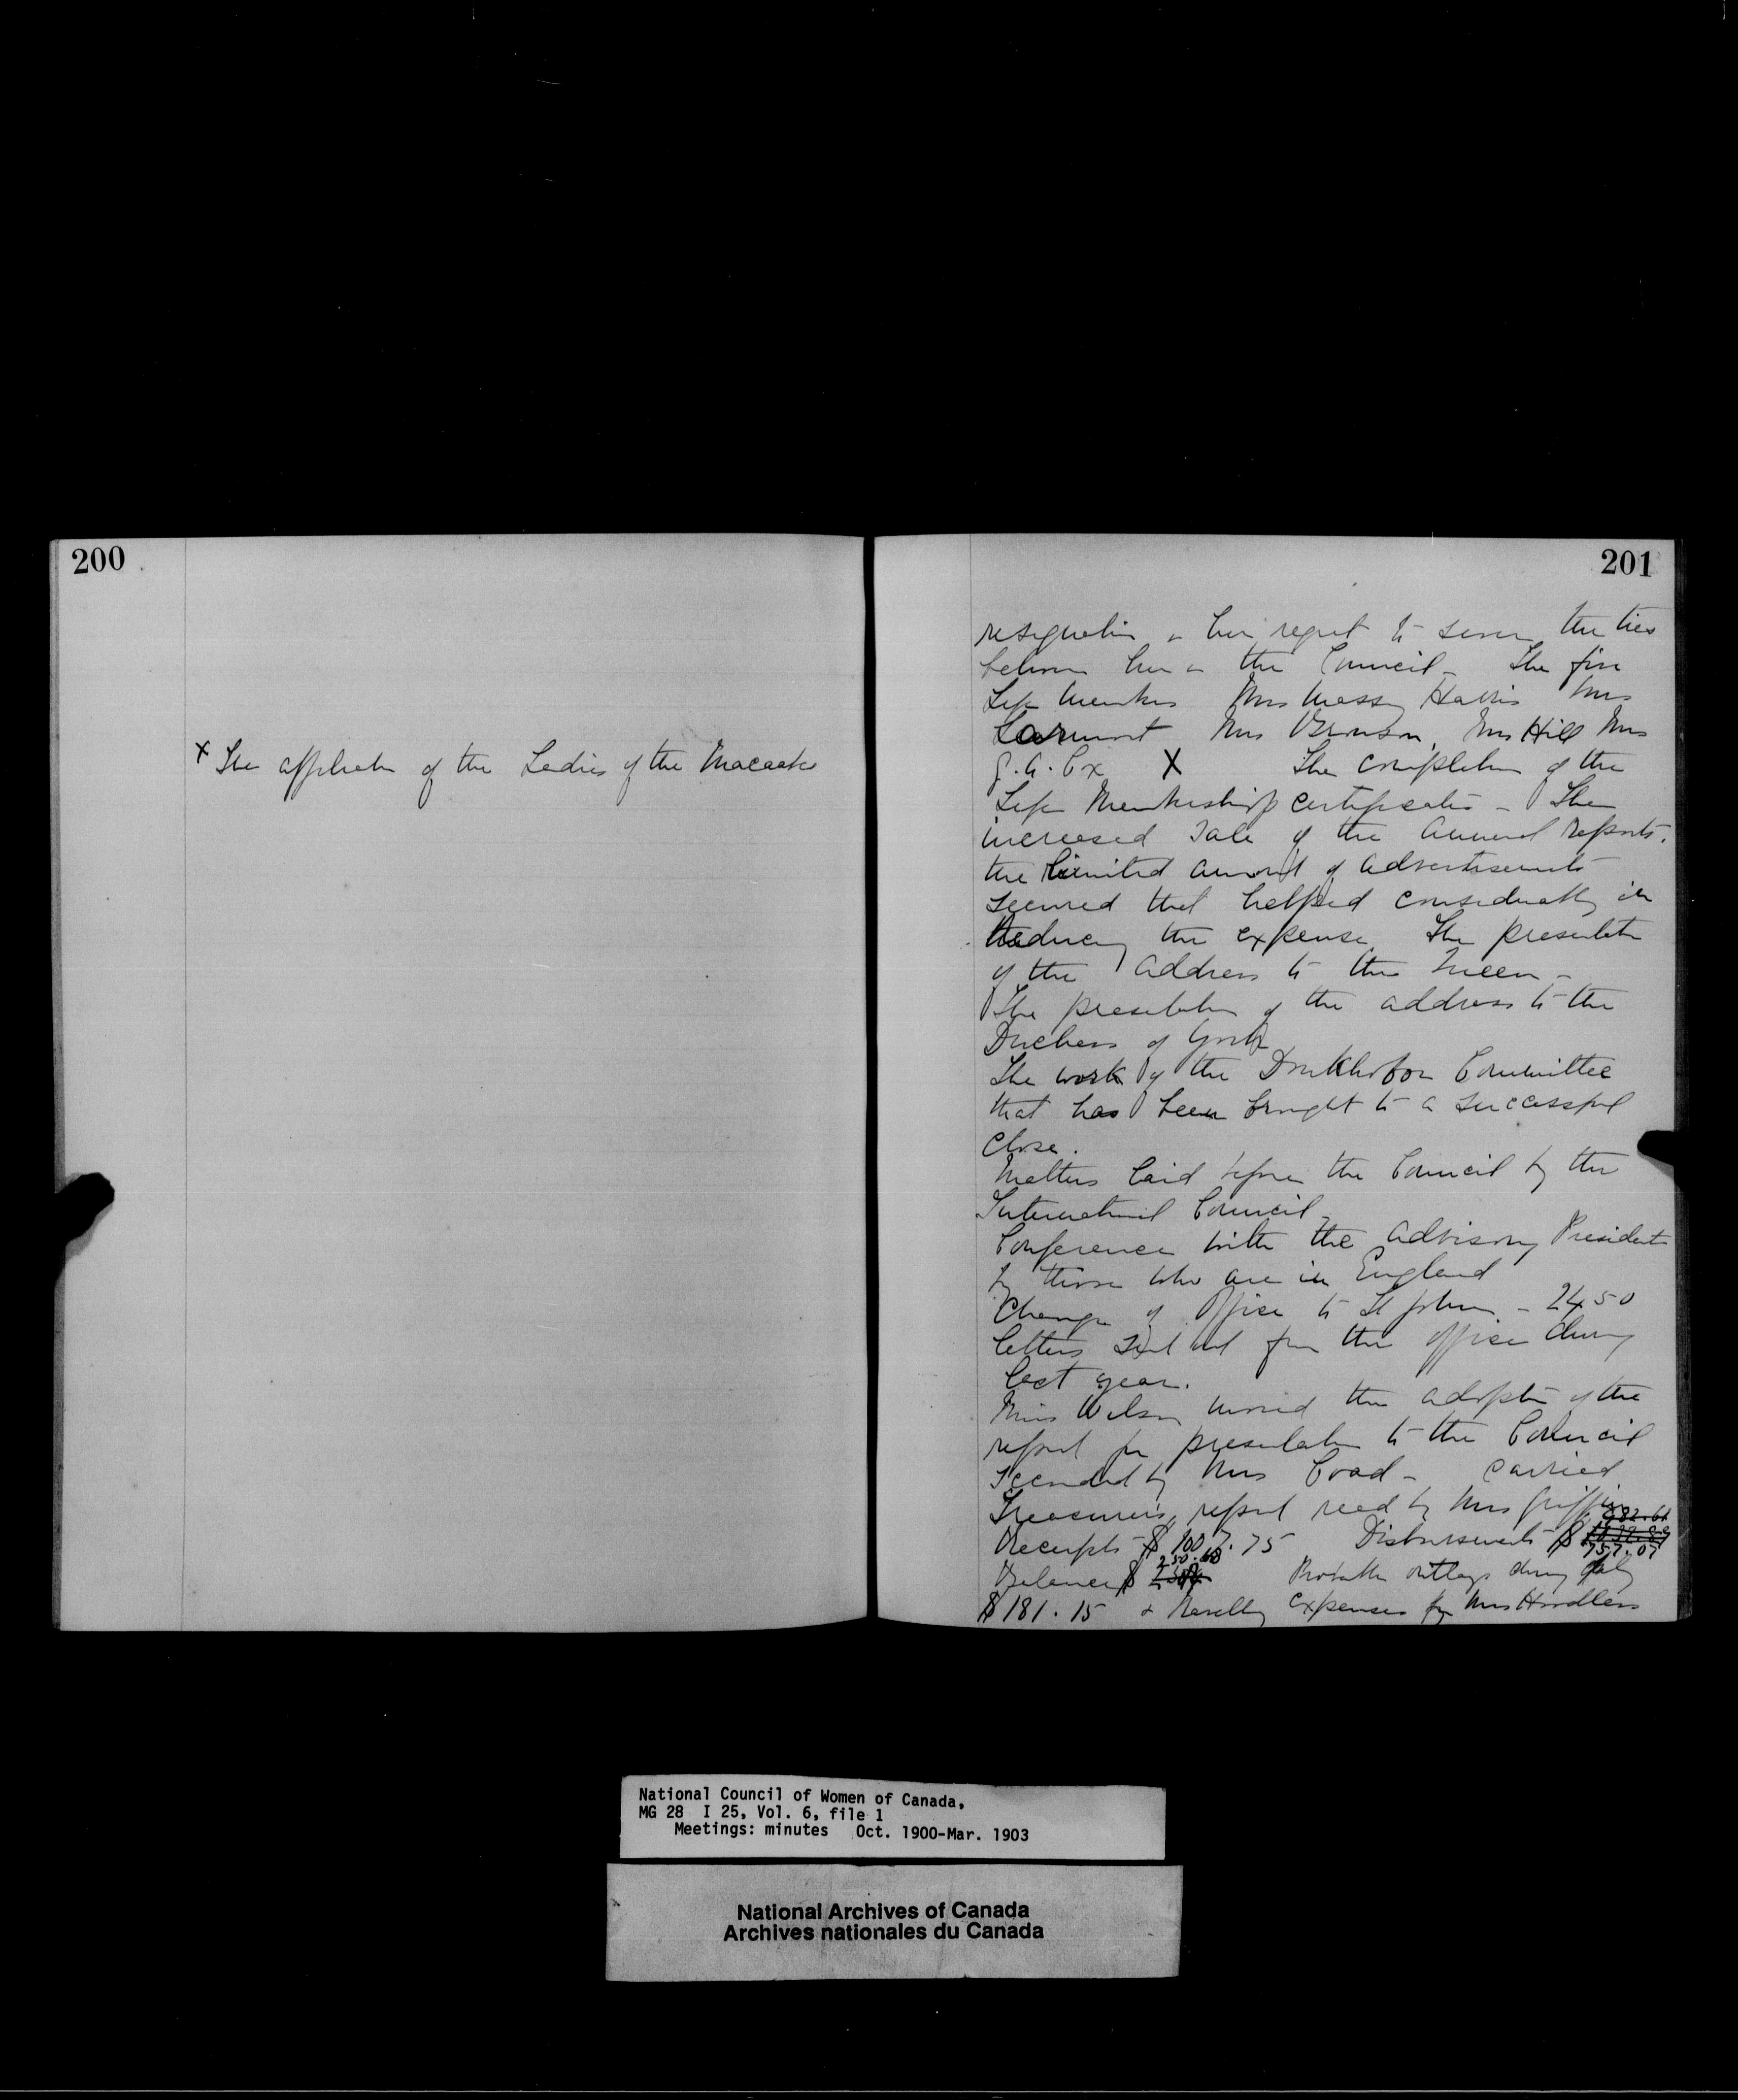 200
x The application of the Ladies of the Macabees
201
resignation & her regret to sever the ties
between her & the Council - The five
Life Members Mrs Massey Harris Mrs
Mrs Bronson, Mrs Hill Mrs
G. A. Cox X The completion of the
Life Membership certificates - The
increased sale of the Annual reports.
the limited amount of advertisements
secured that helped considerably in
Reducing the expense. The presentation
of the Address to the Queen -
The presentation of the address to the
Duchess of York
The work of the Doukhobor Committee
that has been brought to a successful
close.
Matters laid before the Council by the
International Council -
Conference with the Advisory President
by those who are in England
Change of Office to St John - 2450
letters sent out from the office during
last year.
Miss Wilson moved the adoption of the
report for presentation to the Council
seconded by Mrs Coad - carried
Treasurer's report read by Mrs Griffin
Receipts - $1007.75 Disbursements $ 757.07
Balance $ 250.68 Probable outlays during July
$181.15 & travelling expenses for Mrs Hoodless
National Council of Women of Canada,
MG 28 I 25, Vol. 6, file 1
Meetings: minutes Oct. 1900-Mar. 1903
National Archives of Canada
Archives nationales du Canada